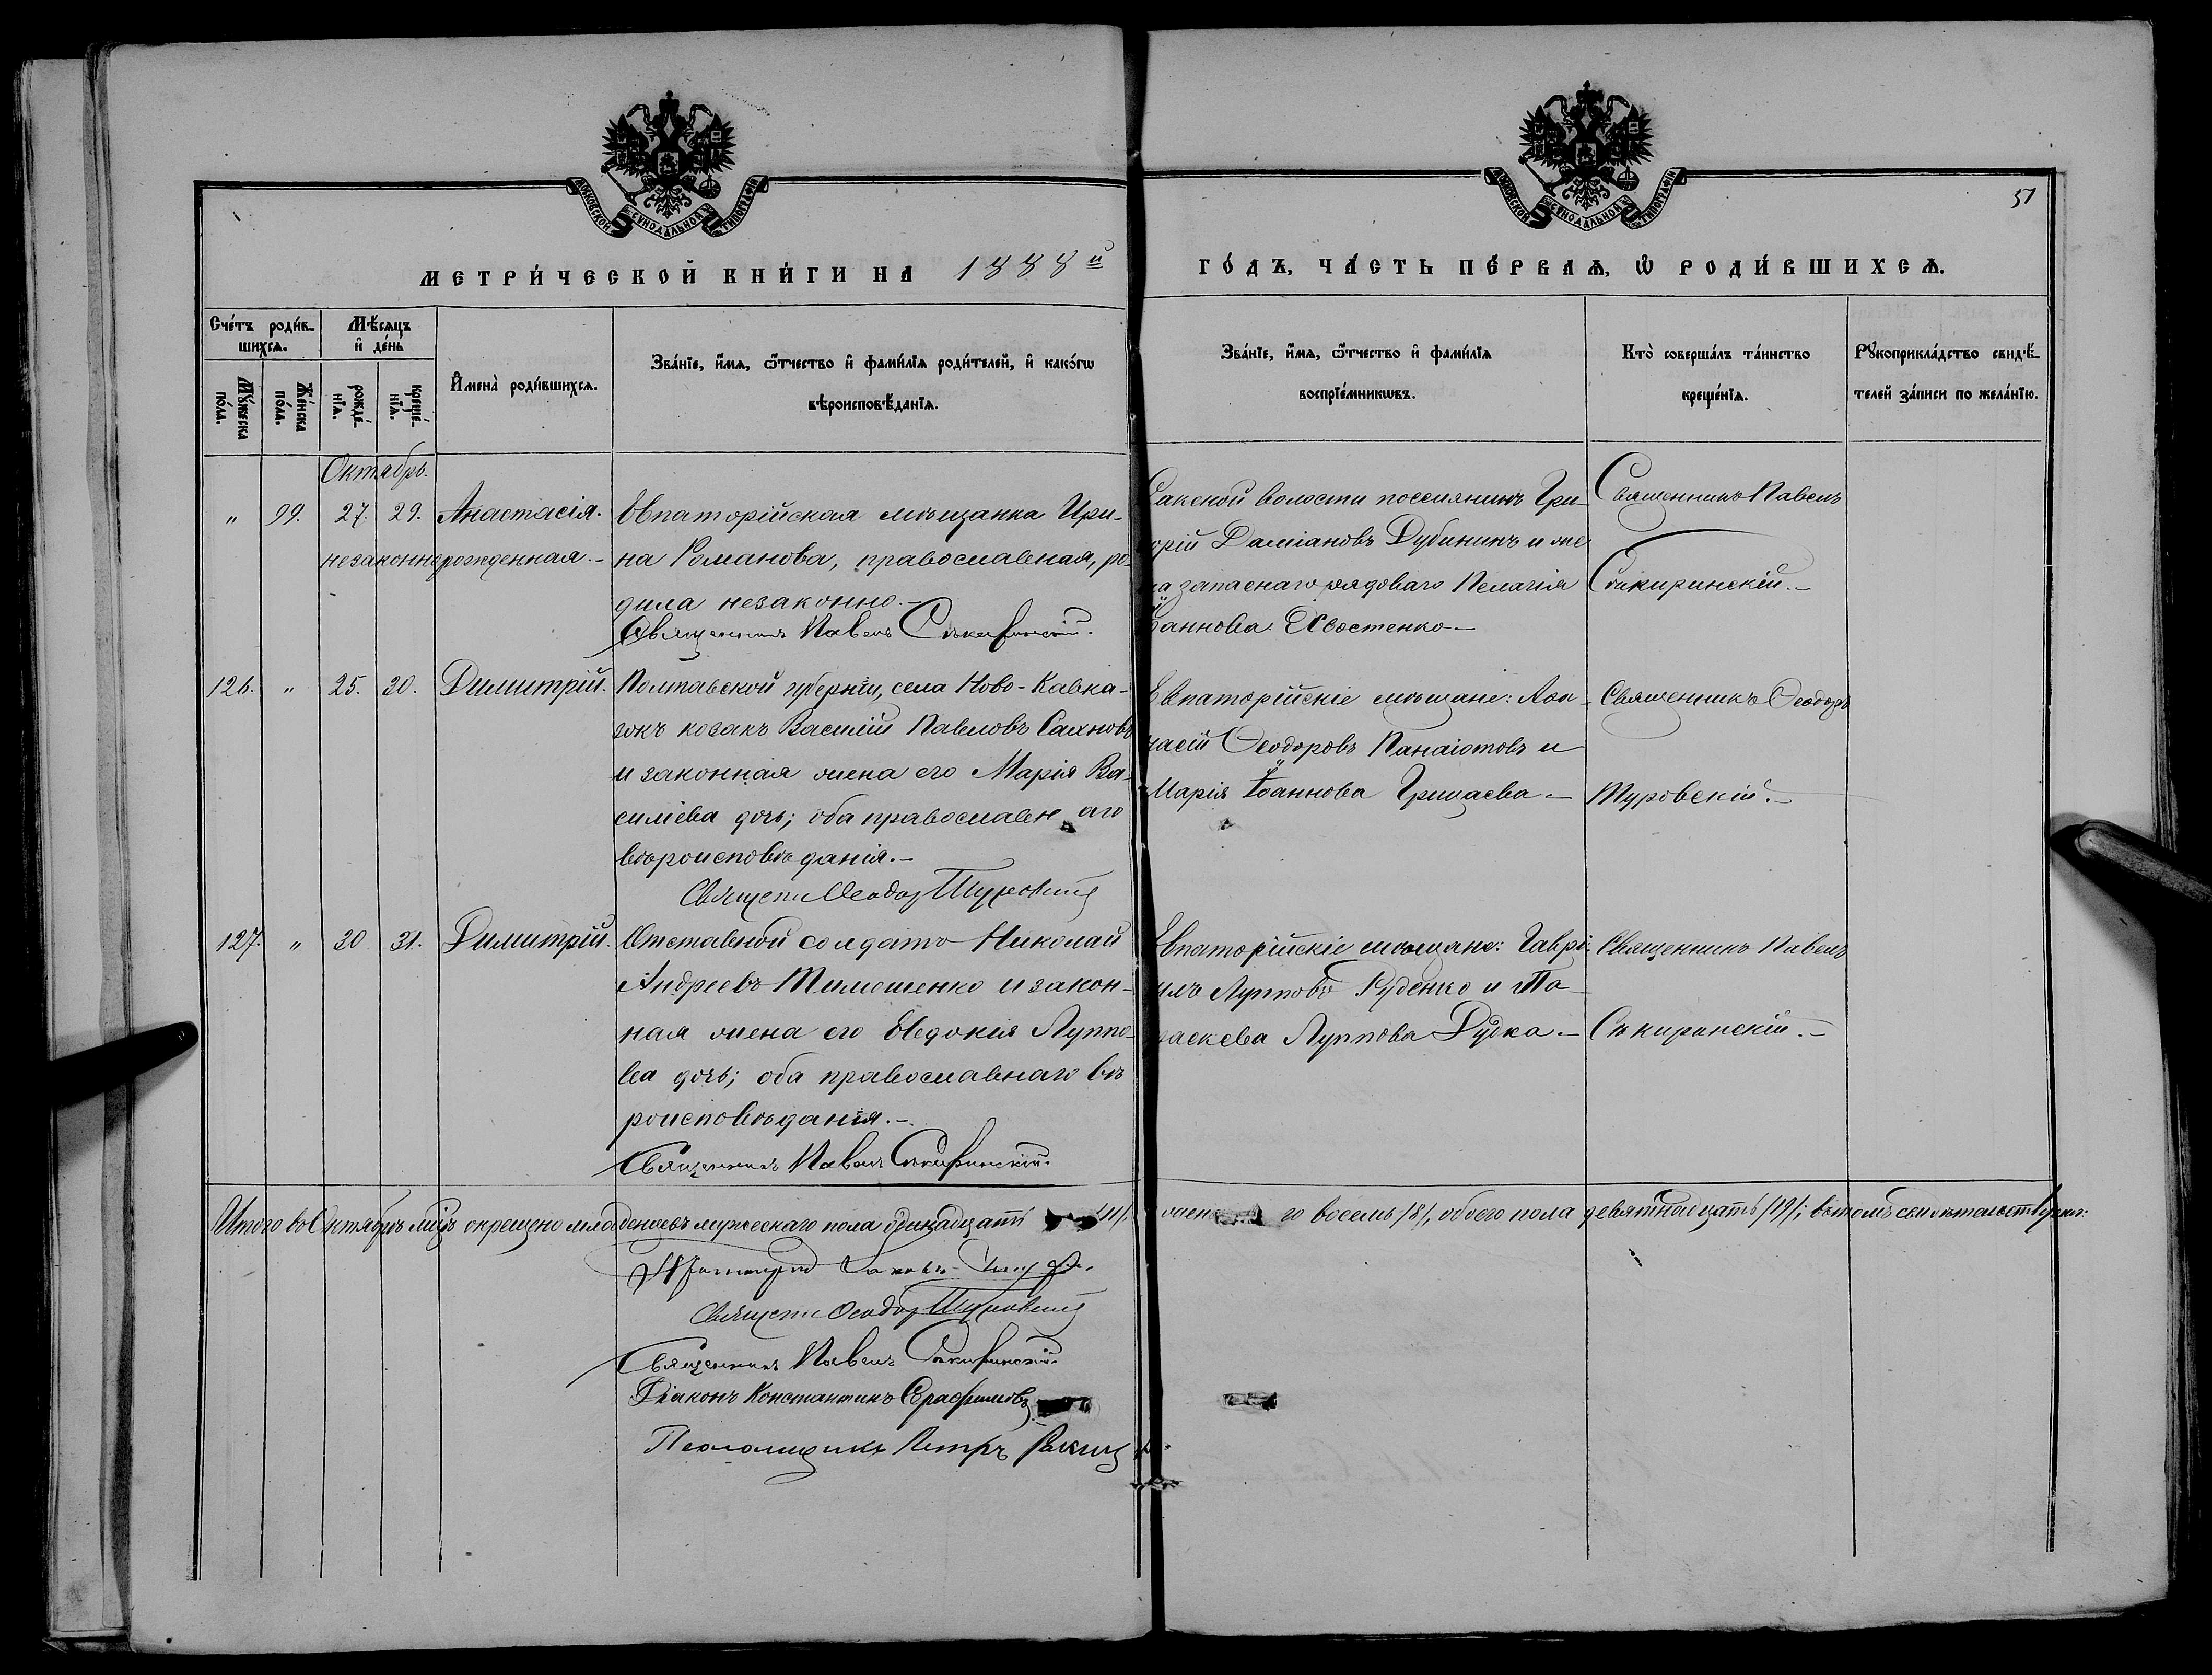 МОСКОВСКОЙ СѴНОДАЛЬНОЙ ТИПОГРАФІИ
МОСКОВСКОЙ СѴНОДАЛЬНОЙ ТИПОГРАФІИ
51
МЕТРИ́ЧЕСКОЙ КНИ́ГИ НА 1888й ГО́ДЪ, ЧА́СТЬ ПЕ́РВАѦ, Ѡ РОДИ́ВШИХСѦ.
Сче́тъ роди́в-
шихсѧ.
Мѣ́сяцъ
и҆ де́нь
Мꙋ́жеска
по́ла.
Же́нска
по́ла.
рожде́-
нїѧ.
креще́-
нїѧ.
И҆мена̀ роди́вшихсѧ.
Зва́нїе, и҆́мѧ, ѻ҆́тчество и҆ фами́лїѧ роди́телей, и҆ како́гѡ
вѣроисповѣ́данїѧ.
Зва́нїе, и҆́мѧ, ѻ҆́тчество и҆ фами́лїѧ
воспрїе́мникѡвъ.
Кто̀ соверша́лъ та́инство
креще́нїѧ.
Рꙋкоприкла́дство свидѣ́-
телей за́писи по жела́нїю.
Октябрь.
" 99. 27. 29. Анастасія.
незаконнорожденная.-
Евпаторійская мѣщанка Ири-
на Романова, православная, ро-
дила незаконно.-
Священникъ Павелъ Сѣкиринскій.
Сакской волости поселянинъ Гри-
горій Даміановъ Дубининъ и же
на запаснаго рядоваго Пелагія
Іоаннова Хвостенко-
Священникъ Павелъ
Сѣкиринскій.-
126. " 25. 30. Димитрій.
Полтавской губерніи, села Ново-Кавка-
козакъ Василій Павловъ Сахновъ
и законная жена его Марія Ва-
силіева дочь; оба православнаго
вѣроисповѣданія.-
Священ. Ѳеодоръ Туровскій
Евпаторійскіе мѣщане: Аѳа-
насій Ѳеодоровъ Панаіотовъ и
Марія Іоаннова Грищаева-
Священникъ Ѳеодоръ
Туровскій.-
127. " 30 31. Димитрій.
Отставной солдатъ Николай
Андреевъ Тимошенко и закон-
ная жена его Евдокія Луппо-
ва дочь; оба православнаго вѣ
роисповѣданія.-
Священникъ Павелъ Сѣкиринскій.
Евпаторійскіе мѣщане: Гаврі-
илъ Лупповъ Руденко и Па-
раскева Луппова Дудка-
Священникъ Павелъ
Сѣкиринскій.-
Итого въ Октябрѣ мцѣ окрещено младенцевъ мужескаго пола одинадцать /11/, женскаго восемь /8/, обоего пола девятнадцать /19/; въ томъ свидѣтельствуемъ:
Священ. Ѳеодоръ Туровскій
Священникъ Павелъ Сѣкиринскій.
Діаконъ Константинъ Серафимовъ
Псаломщикъ Петръ